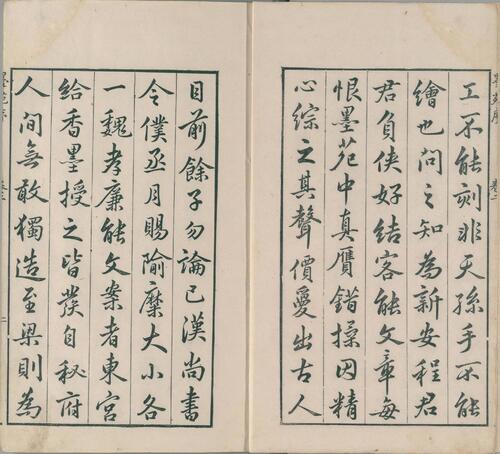 工不能刻非天孫手不能
繪也問之知為新安程君
君負俠好結客能文章每
恨墨苑中真贋錯摻因精
心綜之其聲價愛出古人
目前餘子勿論已漢尚書
令僕丞月賜隃糜大小各
一魏孝廉能文案者東宮
給香墨授之皆發自秘府
人間無敢獨造至梁則為